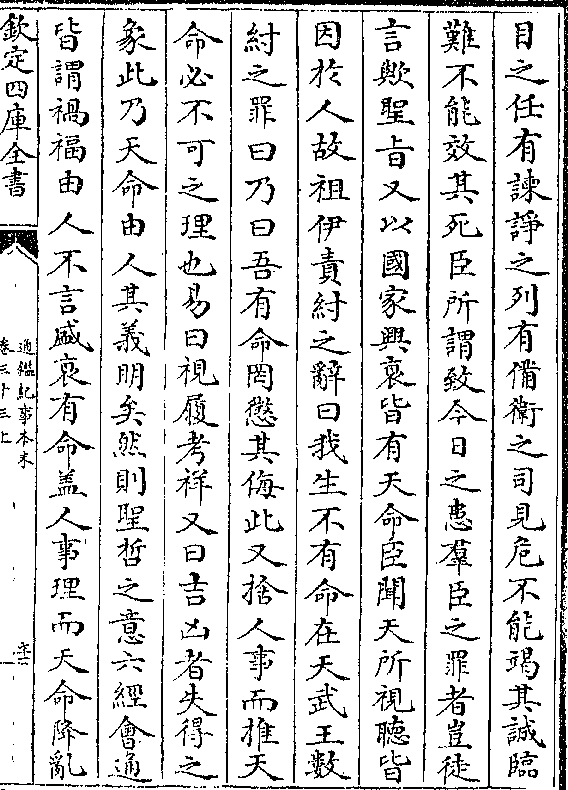 目之任有諫諍之列有備衛之司見危不能竭其誠臨
難不能效其死臣所謂致今日之患羣臣之罪者豈徒
言歟聖旨又以國家興衰皆有天命臣聞天所視聽皆
因於人故祖伊責紂之辭曰我生不有命在天武王數
紂之罪曰乃曰吾有命罔懲其侮此又捨人事而推天
命必不可之理也易曰視履考祥又曰吉凶者失得之
象此乃天命由人其義明矣然則聖哲之意六經會通
皆謂禍福由人不言盛衰有命盖人事理而天命降亂
欽定四庫全書
通鑑紀事本末
卷三十三上